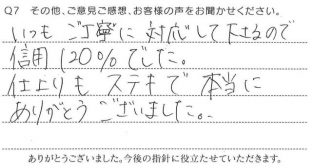 Q7 その他、ご意見ご感想、お客様の声をお聞かせください。
いつもご丁寧に対応して下さるので
信用120%でした。
仕上りもステキで本当に
ありがとうございました。
ありがとうございました。今後の指針に役立たせていただきます。